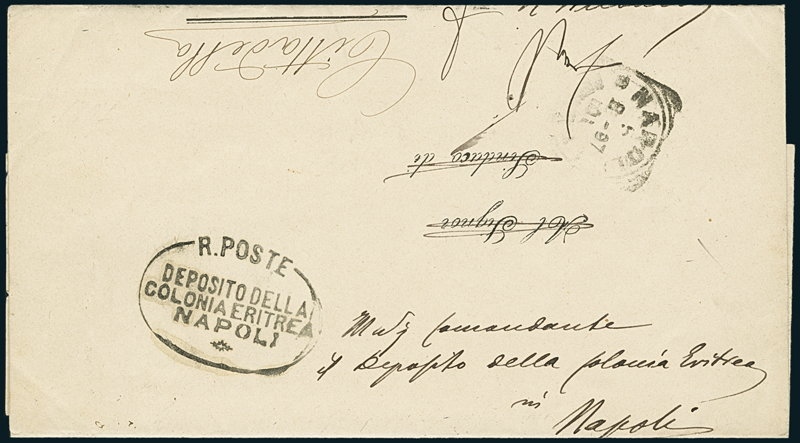 R. POSTE
DEPOSITO DELLA
COLONIA ERITREA
NAPOLI
Comandante
il Deposito della Colonia Eritrea
in
Napoli
Al Signor
Sindaco di
Cittadella
NAPOLI
5 - 97